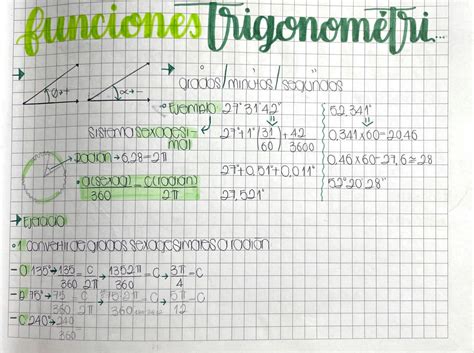 funciones trigonométri...
θ→+
α→-
grados/minutos/segundos
Ejemplo 27°31'42"
Sistema sexagesi-
mal
27°+1°(31/60)+42/3600
27°+0,51+0,011°
27,521°
52,341°
0,341x60=20,46
0,46x60=27,6≈28
52°20'28"
Radián→6,28=2π
G(sexag)/360=C(radián)/2π
Ejercicio
1 convertir de grados sexagesimales a radián
135°→135/360=C/2π→135·2π/360=C→3π/4=C
75°→75/360=C/2π→75·2π/360=C→5π/12=C
C 240°→240/360=